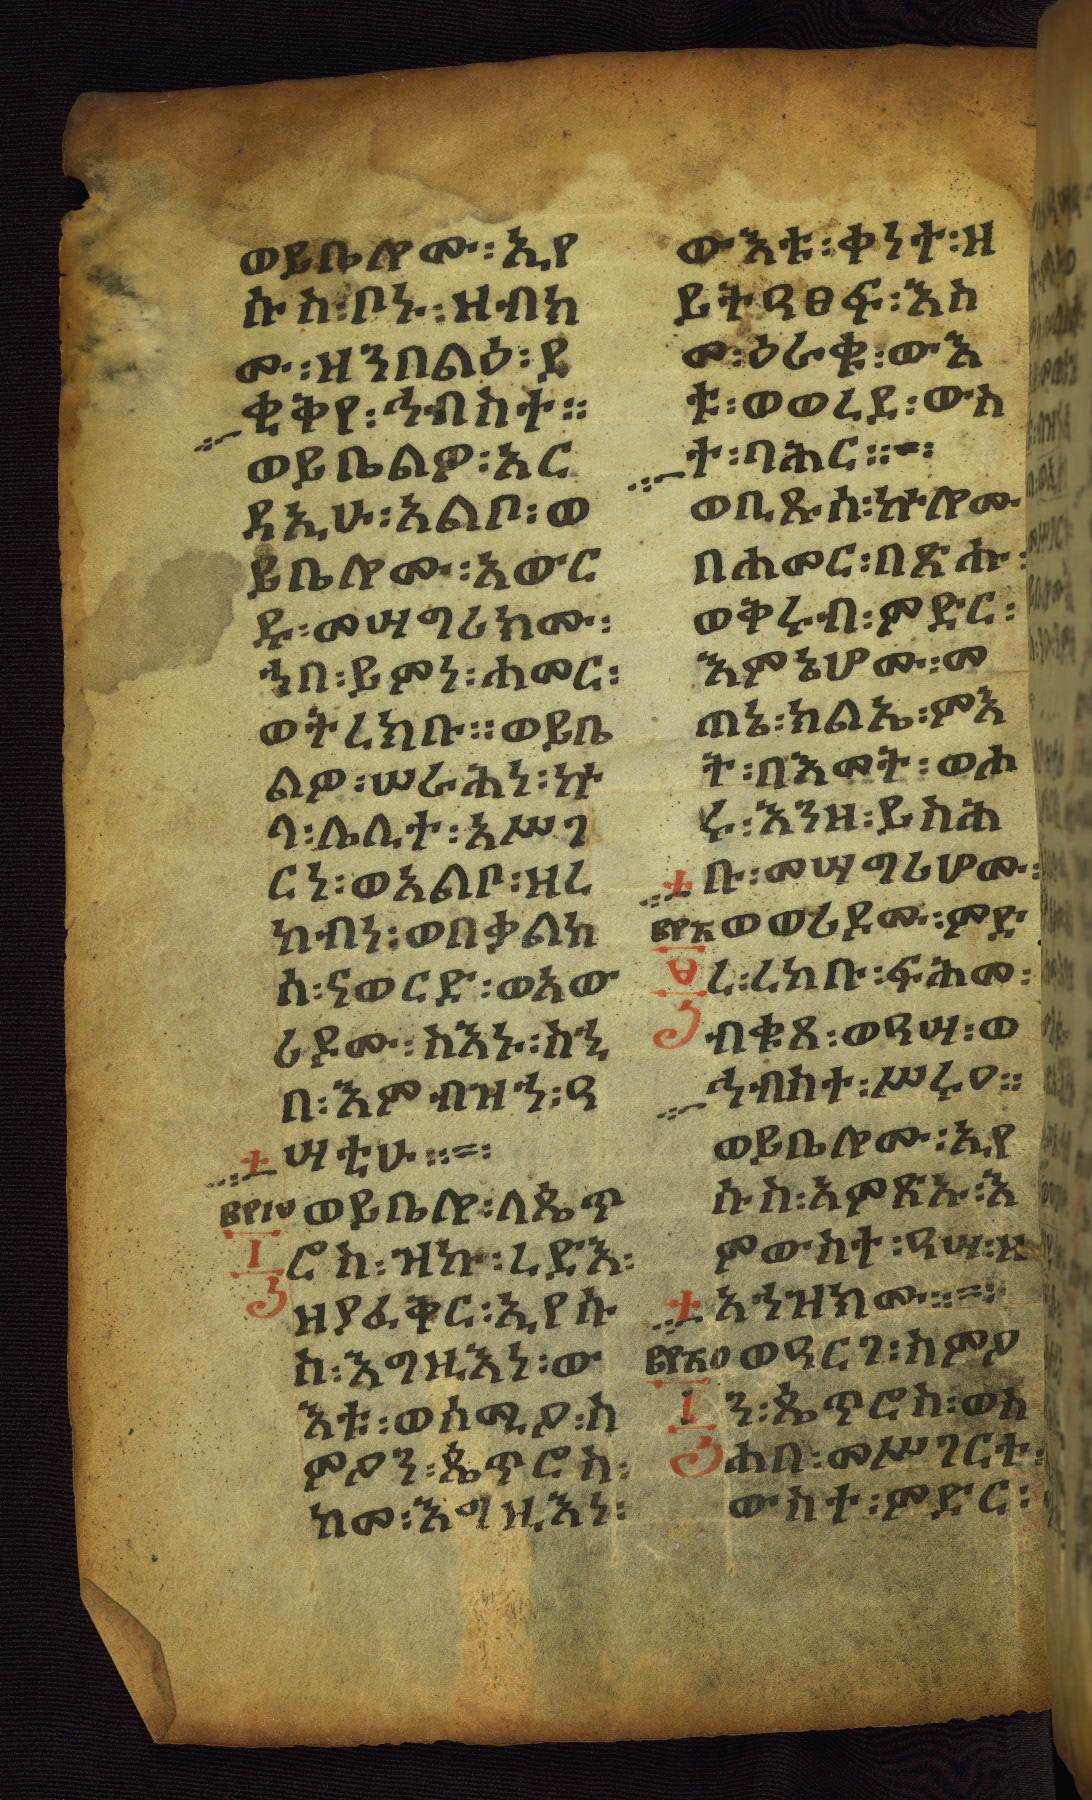 ወይቤሎሙ፡ኢየ
ሱስ፡ቦኑ፡ዝብክ
ሙ፡ዘንበልዕ፡ደ
ቂቅየ፡ኅብስት፡፡
ወይቤልዎ፡አር
ዳኢሁ፡አልቦ፡ወ
ይቤሎሙ፡አውር
ዱ፡መሣግሪክሙ፡
ኀበ፡ይምነ፡ሐመር፡
ወትረክቡ፡፡ወይቤ
ልዎ፡ሠራሕነ፡ኵ
ላ፡ሌሊተ፡አሥገ
ርነ፡ወአልቦ፡ዘረ
ከብነ፡ወበቃልከ
ሰ፡ናወርድ፡ወአው
ሪዶሙ፡ስእኑ፡ስኂ
በ፡እምብዝኀ፡ዓ
ሣቲሁ፡፡=፡
ወይቤሎ፡ለጴጥ
ሮስ፡ዝኩ፡ረድእ፡
ዘያፈቅር፡ኢየሱ
ስ፡እግዚእነ፡ው
እቱ፡ወሰሚዖ፡ስ
ምዖን፡ጴጥሮስ፡
ከመ፡እግዚእነ፡
ውእቱ፡ቀነተ፡ዘ
ይትዓፀፍ፡እስ
መ፡ዕራቁ፡ውእ
ቱ፡ወወረደ፡ውስ
ተ፡ባሕር፡፡=፡
ወቢጹሰ፡ኵሎሙ
በሐመር፡በጽሑ፡
ወቅሩብ፡ምድር፡
እምኔሆሙ፡መ
ጠኔ፡ክልኤ፡ምእ
ት፡በእመት፡ወሐ
ሩ፡እንዘ፡ይስሕ
ቡ፡መሣግሪሆሙ፡
ወወሪዶሙ፡ምድ
ረ፡ረከቡ፡ፍሕመ፡
ብቁጸ፡ወዓሣ፡ወ
ኅብስተ፡ሥሩዐ፡፡
ወይቤሎሙ፡ኢየ
ሱስ፡አምጽኡ፡እ
ምውስተ፡ዓሣ፡ዘ
አኀዝክሙ፡፡=፡
ወዓርገ፡ስምዖ
ን፡ጴጥሮስ፡ወስ
ሕበ፡መሥገርተ፡
ውስተ፡ምድር፡